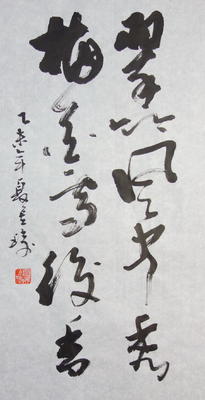 翠竹風前秀
梅花雪後香
乙未年夏